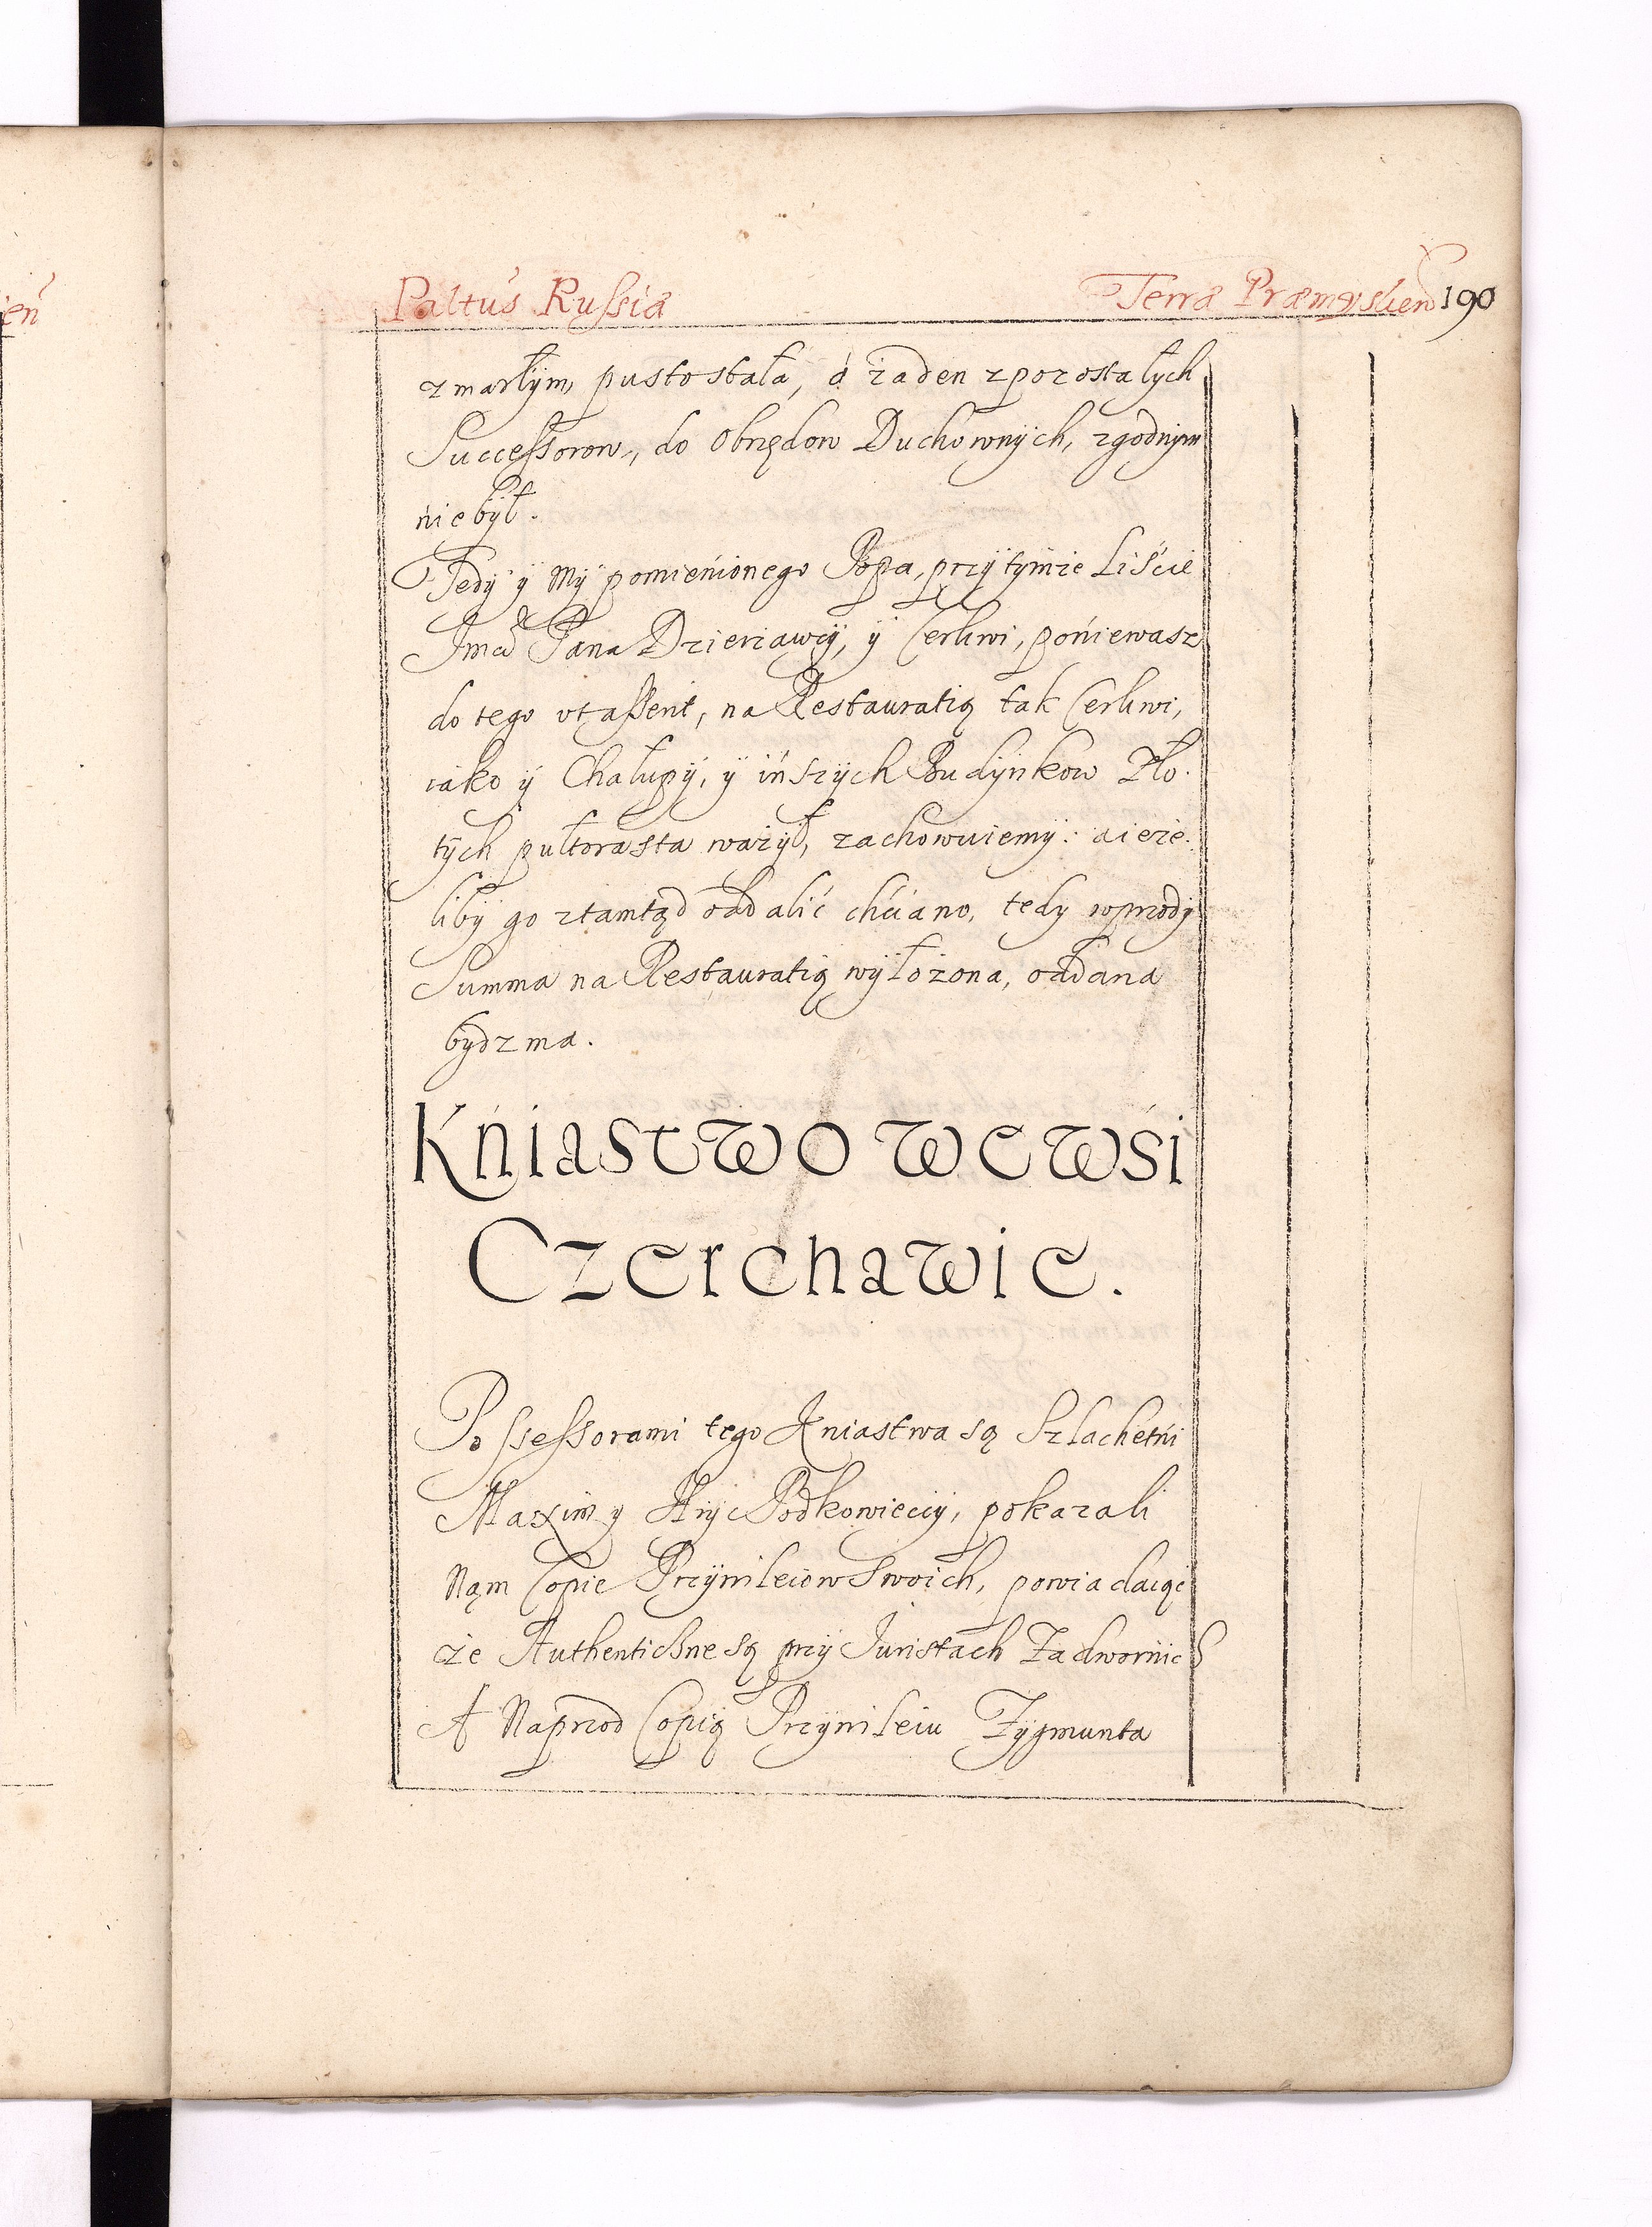 Paltus Russiæ Terra Præmyslien 190
zmarłym, pusto stała, á żaden z pozostałych
Successorow, do Obrzędow Duchownych, zgodnym
niebył.
Tedy y My pomienionego Popa, przy tymże Liście
Jmci Pana Dzierżawcy, y Cerkwi, ponieważ
do tego, na Restauratią tak Cerkwi,
iako y Chałupy, y inszych Budynkow Zło.
tych pułtorasta ważył, zachowuiemy: a ieże.
liby go ztamtąd oddalić chciano, tedy wprzody
Summa na Restauratią wyłożona, oddana
bydz ma.
Kniastwo we wsi
Czerchawie.
Possessorami tego Kniastwa są Szlachetni
Maxim y Hryc Podkowieccy, pokazali
Nąm Copie Przywileiow Swoich, powiadaiąc
że Authentickne są przy Juristach Zadwornich
A Naprzod Copią Przywileiu Zygmunta
ien